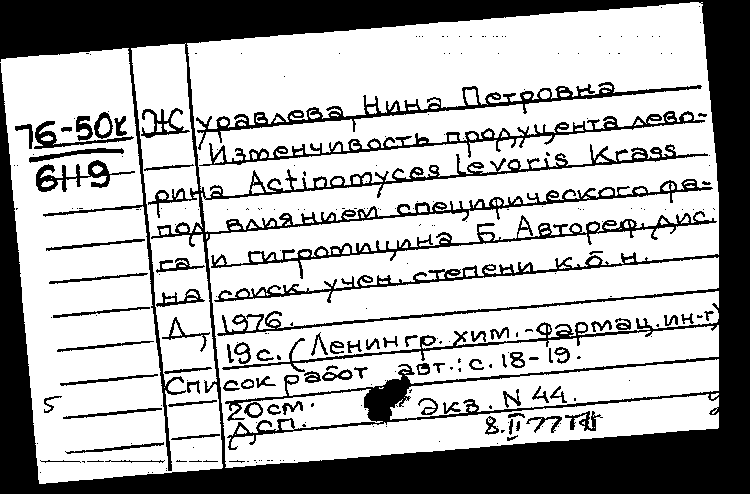 76-50к
6119
Журавлева, Нина Петровна
Изменчивость продуцента лево-
рина Actinomyces levoris Krass
под влиянием специфического фа-
га и гигромицина Б. Автореф. дис.
на соиск. учен. степени к.б.н.
Л, 1976.
19 с. (Ленингр. хим.-фармац. ин-т)
Список работ авт.: с. 18-19.
20 см.
5
ДСП. Экз. N 44.
8.II 77